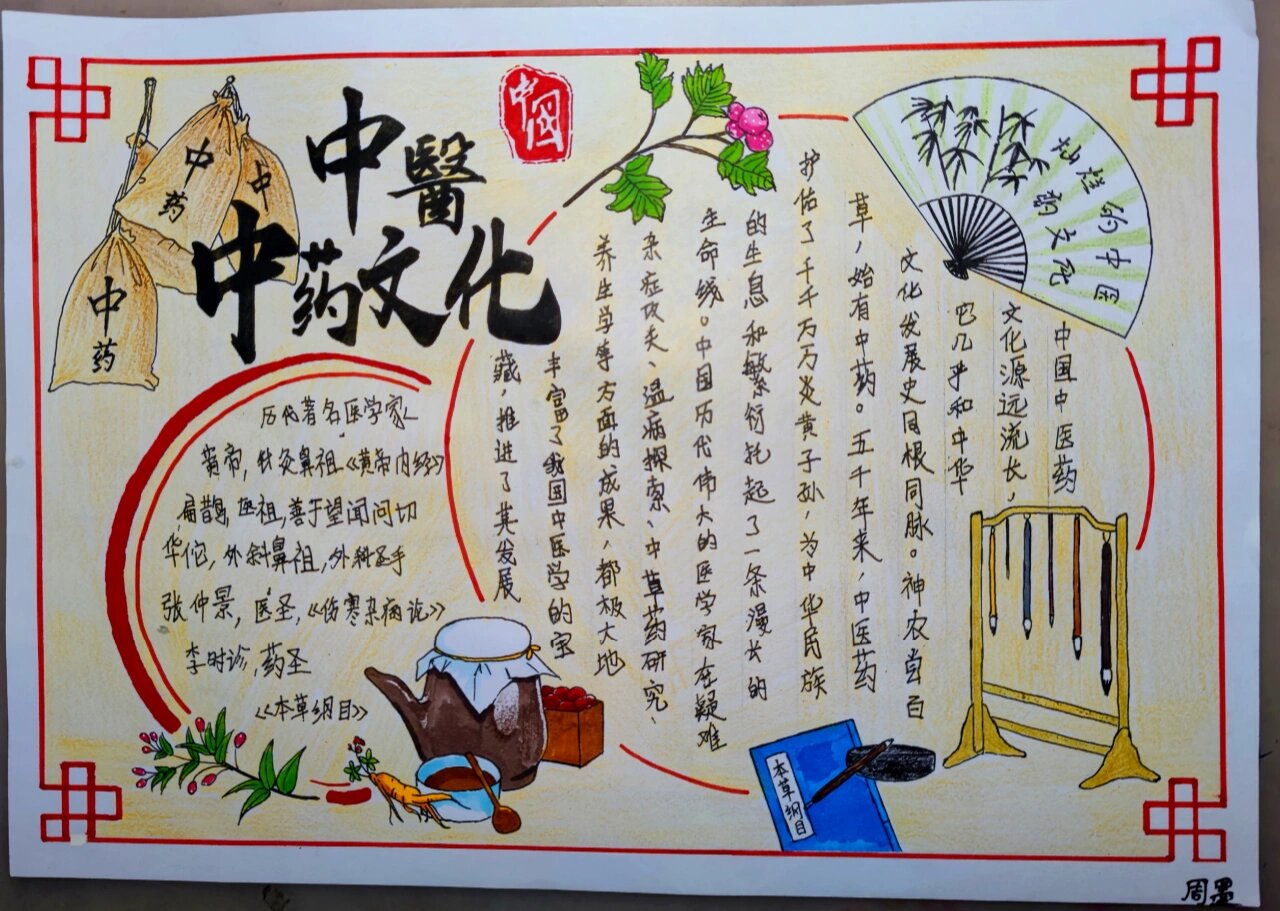 中国
中醫
中药文化
中药
中
中药
灿烂的中国
药文化
中国中医药
文化源远流长，
它几乎和中华
文化发展史同根同脉。神农尝百
草，始有中药。五千年来，中医药
护佑了千千万万炎黄子孙，为中华民族
的生息和繁衍托起了一条漫长的
生命线。中国历代伟大的医学家在疑难
杂症攻关、温病探索、中草药研究、
养生学等方面的成果，都极大地
丰富了我国中医学的宝
藏，推进了其发展
历代著名医学家
黄帝，针灸鼻祖《黄帝内经》
扁鹊，医祖，善于望闻问切
华佗，外斜鼻祖，外科圣手
张仲景，医圣，《伤寒杂病论》
李时诊，药圣
《本草纲目》
本草纲目
周墨